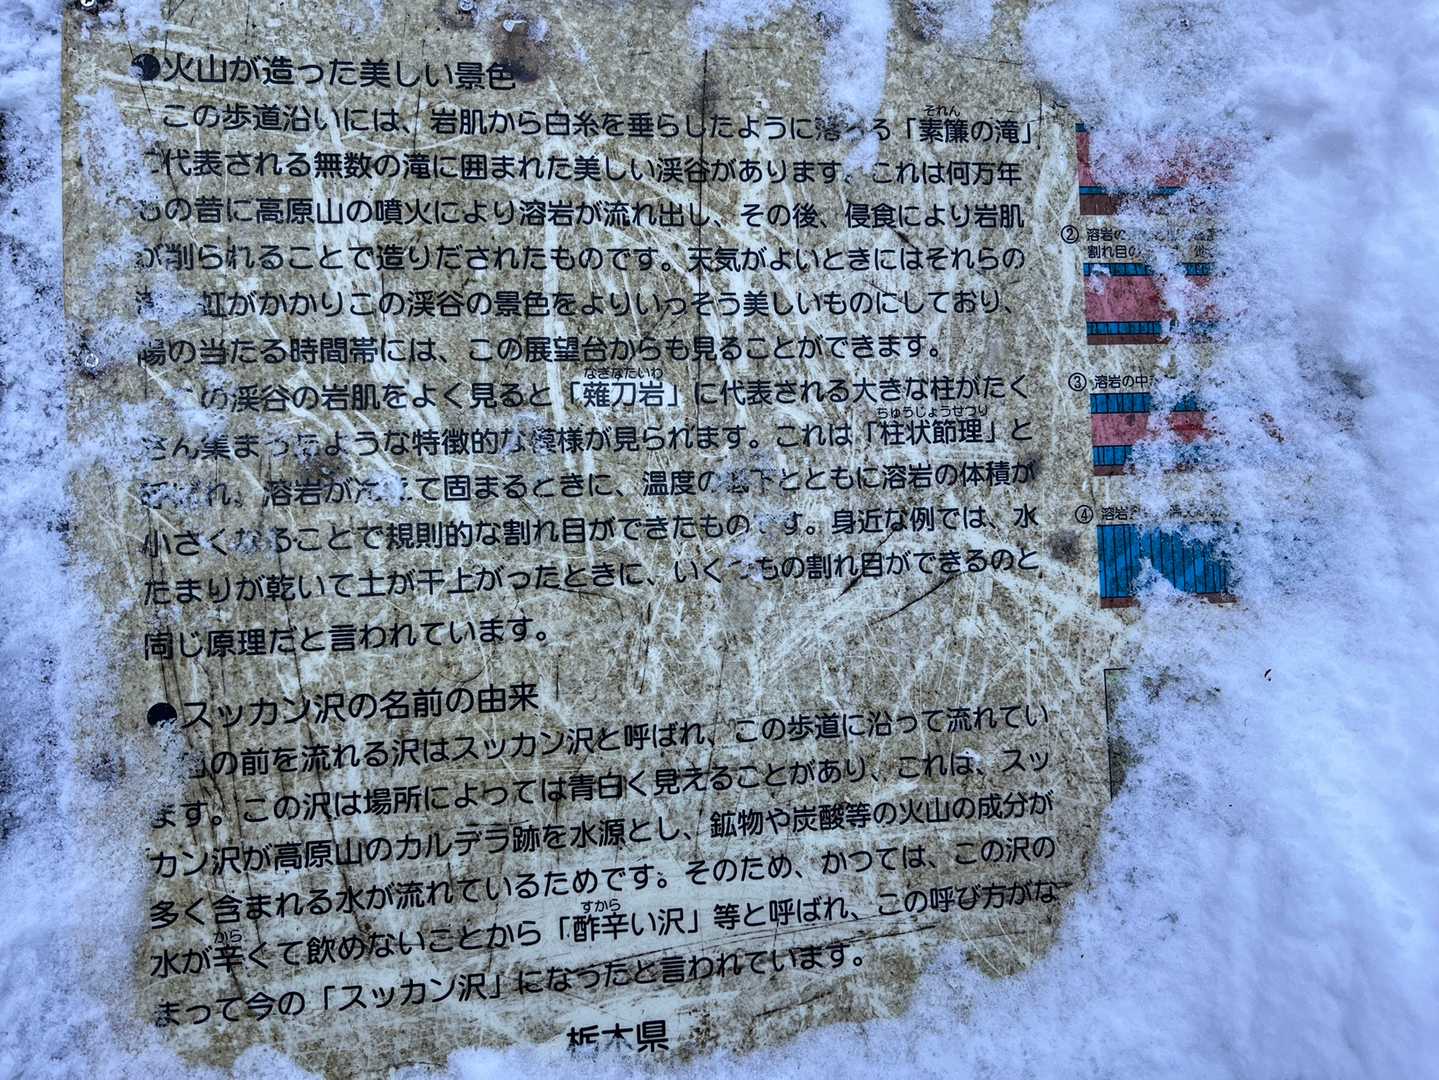 ●火山が造った美しい景色
この歩道沿いには、岩肌から白糸を垂らしたように落ちる「素簾の滝」
それん
に代表される無数の滝に囲まれた美しい渓谷があります。これは何万年
もの昔に高原山の噴火により溶岩が流れ出し、その後、侵食により岩肌
が削られることで造りだされたものです。天気がよいときにはそれらの
虹がかかりこの渓谷の景色をよりいっそう美しいものにしており、
陽の当たる時間帯には、この展望台からも見ることができます。
なぎなたいわ
の渓谷の岩肌をよく見ると「薙刀岩」に代表される大きな柱がたく
ちゅうじょうせつり
さん集まったような特徴的な模様が見られます。これは「柱状節理」と
呼ばれ、溶岩が冷えて固まるときに、温度の低下とともに溶岩の体積が
小さくなることで規則的な割れ目ができたものです。身近な例では、水
たまりが乾いて土が干上がったときに、いくつもの割れ目ができるのと
同じ原理だと言われています。
●スッカン沢の名前の由来
の前を流れる沢はスッカン沢と呼ばれ、この歩道に沿って流れてい
ます。この沢は場所によっては青白く見えることがあり、これは、スッ
カン沢が高原山のカルデラ跡を水源とし、鉱物や炭酸等の火山の成分が
多く含まれる水が流れているためです。そのため、かつては、この沢の
から
すから
水が辛くて飲めないことから「酢辛い沢」等と呼ばれ、この呼び方がな
まって今の「スッカン沢」になったと言われています。
栃木県
② 溶岩の
割れ目の
③ 溶岩の中
④ 溶岩